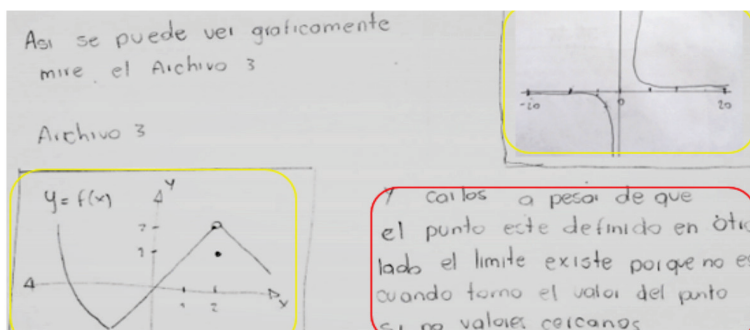 Asi se puede ver graficamente
mire el Archivo 3
Archivo 3
-20 0 20
y = f(x)
y
2
1
1 2
x
Y carlos a pesar de que
el punto este definido en otro
lado el limite existe porque no es
cuando tomo el valor del punto
si no valores cercanos